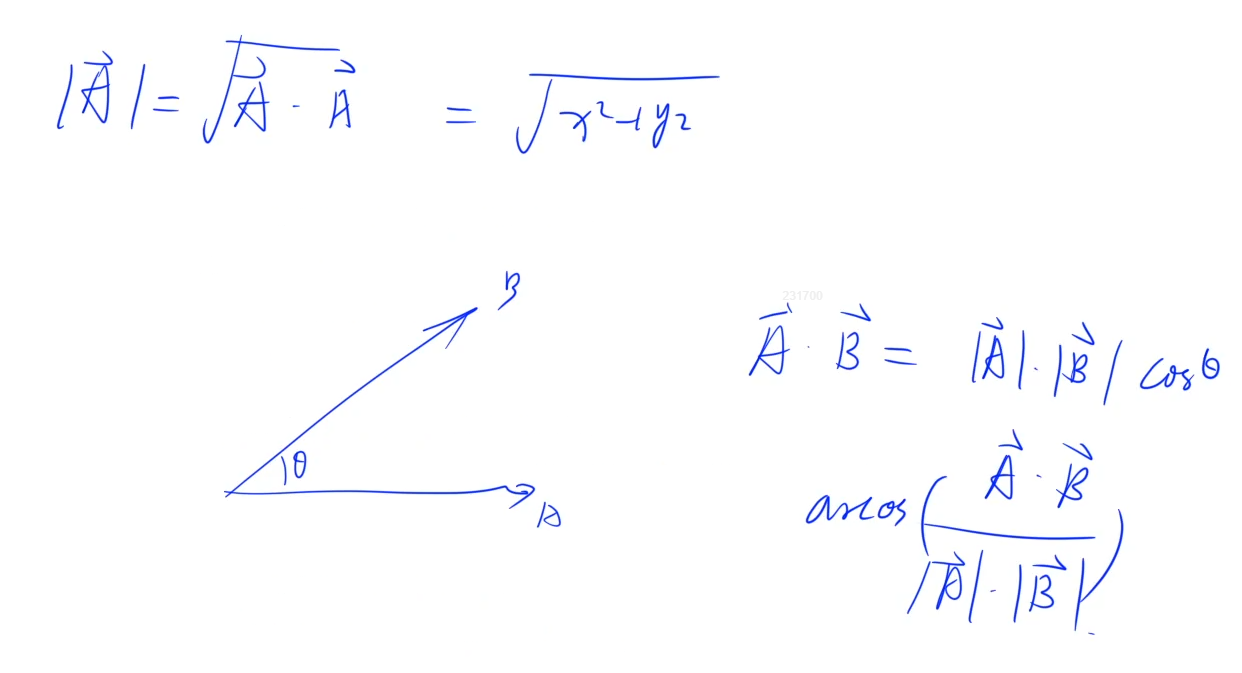 |A⃗| = √(A⃗ · A⃗) = √(x² + y²)
B
231700
A⃗ · B⃗ = |A⃗| · |B⃗| cosθ
θ
A
arccos( (A⃗ · B⃗) / (|A⃗| · |B⃗|) )